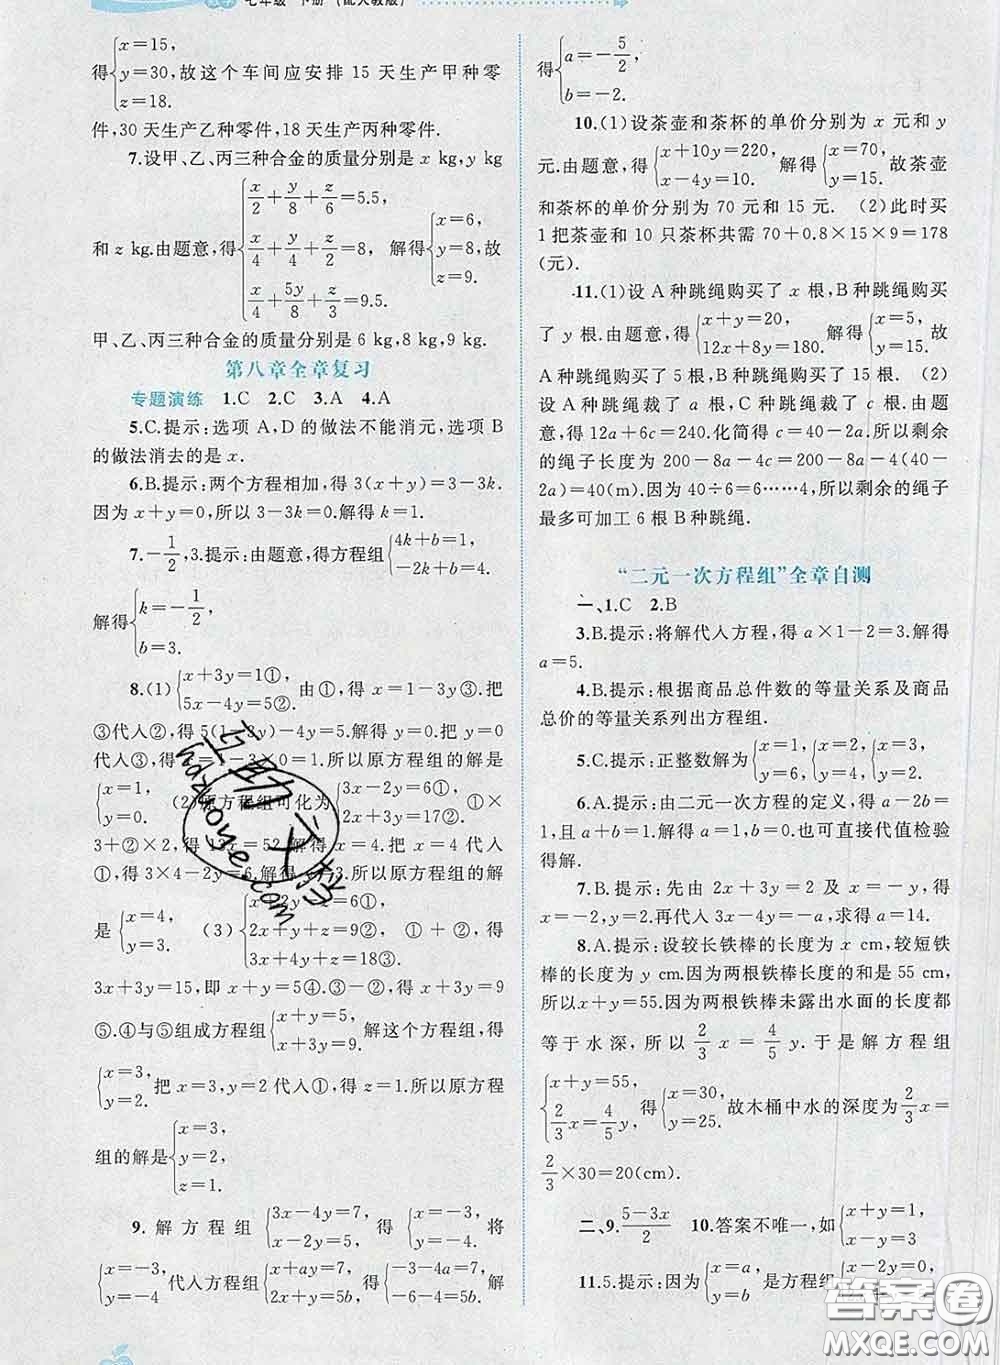 七年级 下册 (配人教版)
得{x=15, y=30, z=18. 故这个车间应安排 15 天生产甲种零
件,30 天生产乙种零件,18 天生产丙种零件.
7.设甲、乙、丙三种合金的质量分别是 x kg,y kg
和 z kg.由题意,得{x/2+y/8+z/6=5.5, x/4+y/4+z/2=8, x/4+5y/8+z/3=9.5. 解得{x=6, y=8, z=9. 故
甲、乙、丙三种合金的质量分别是 6 kg,8 kg,9 kg.
第八章全章复习
专题演练 1.C 2.C 3.A 4.A
5.C.提示:选项 A,D 的做法不能消元,选项 B
的做法消去的是 x.
6.B.提示:两个方程相加,得 3(x+y)=3-3k.
因为 x+y=0,所以 3-3k=0.解得 k=1.
7.-1/2,3.提示:由题意,得方程组{4k+b=1, -2k+b=4.
解得{k=-1/2, b=3.
8.(1){x+3y=1①, 5x-4y=5②. 由①,得 x=1-3y③.把
③代入②,得 5(1-3y)-4y=5.解得 y=0.把 y=0
代入③,得 x=1-3×0=1.所以原方程组的解是
{x=1, y=0. (2)原方程组可化为{3x-2y=6①, 2x+3y=17②.
3+②×2,得 13x=52.解得 x=4.把 x=4 代入
①,得 3×4-2y=6.解得 y=3.所以原方程组的解
是{x=4, y=3. (3){ 2x+y+z=9②, 3x+4y+z=18③. ①+②,得
3x+3y=15,即 x+y=5④.②+③,得 x+3y=9
⑤.④与⑤组成方程组{x+y=5, x+3y=9. 解这个方程组,得
{x=3, y=2. 把 x=3,y=2 代入①,得 z=1.所以原方程
组的解是{x=3, y=2, z=1.
9.解方程组{3x-4y=7, 2x-y=-2. 得{x=-3, y=-4. 将
{x=-3, y=-4 代入方程组{ax+by=7, 2x+y=5b, 得{-3-4a=7, -6-4=5b. 解
得{a=-5/2, b=-2.
10.(1)设茶壶和茶杯的单价分别为 x 元和 y
元.由题意,得{x+10y=220, x-4y=10. 解得{x=70, y=15. 故茶壶
和茶杯的单价分别为 70 元和 15 元. (2)此时买
1 把茶壶和 10 只茶杯共需 70+0.8×15×9=178
(元).
11.(1)设 A 种跳绳购买了 x 根,B 种跳绳购买
了 y 根.由题意,得{x+y=20, 12x+8y=180. 解得{x=5, y=15. 故
A 种跳绳购买了 5 根,B 种跳绳购买了 15 根. (2)
设 A 种跳绳裁了 a 根,C 种跳绳裁了 c 根.由题
意,得 12a+6c=240.化简得 c=40-2a.所以剩余
的绳子长度为 200-8a-4c=200-8a-4(40-
2a)=40(m).因为 40÷6=6……4,所以剩余的绳子
最多可加工 6 根 B 种跳绳.
“二元一次方程组”全章自测
一、1.C 2.B
3.B.提示:将解代人方程,得 a×1-2=3.解得
a=5.
4.B.提示:根据商品总件数的等量关系及商品
总价的等量关系列出方程组.
5.C.提示:正整数解为{x=1, y=6, {x=2, y=4, {x=3, y=2.
6.A.提示:由二元一次方程的定义,得 a-2b=
1,且 a+b=1.解得 a=1,b=0.也可直接代值检验
得解.
7.B.提示:先由 2x+3y=2 及 x=-y,得
x=-2,y=2.再代人 3x-4y=-a,求得 a=14.
8.A.提示:设较长铁棒的长度为 x cm,较短铁
棒的长度为 y cm.因为两根铁棒长度的和是 55 cm,
所以 x+y=55.因为两根铁棒未露出水面的长度都
等于水深,所以 2/3 x=4/5 y.于是解方程组
{x+y=55, 2/3x=4/5y. 得{x=30, y=25. 故木桶中水的深度为 2/3 x=
2/3×30=20(cm).
二、9.(5-3x)/2 10.答案不唯一,如{x+y=1, x-y=3
11.5.提示:因为{x=a, y=b 是方程组{x-2y=0,
互助文档
hdzuoye.com
答案圈
MXQE.COM